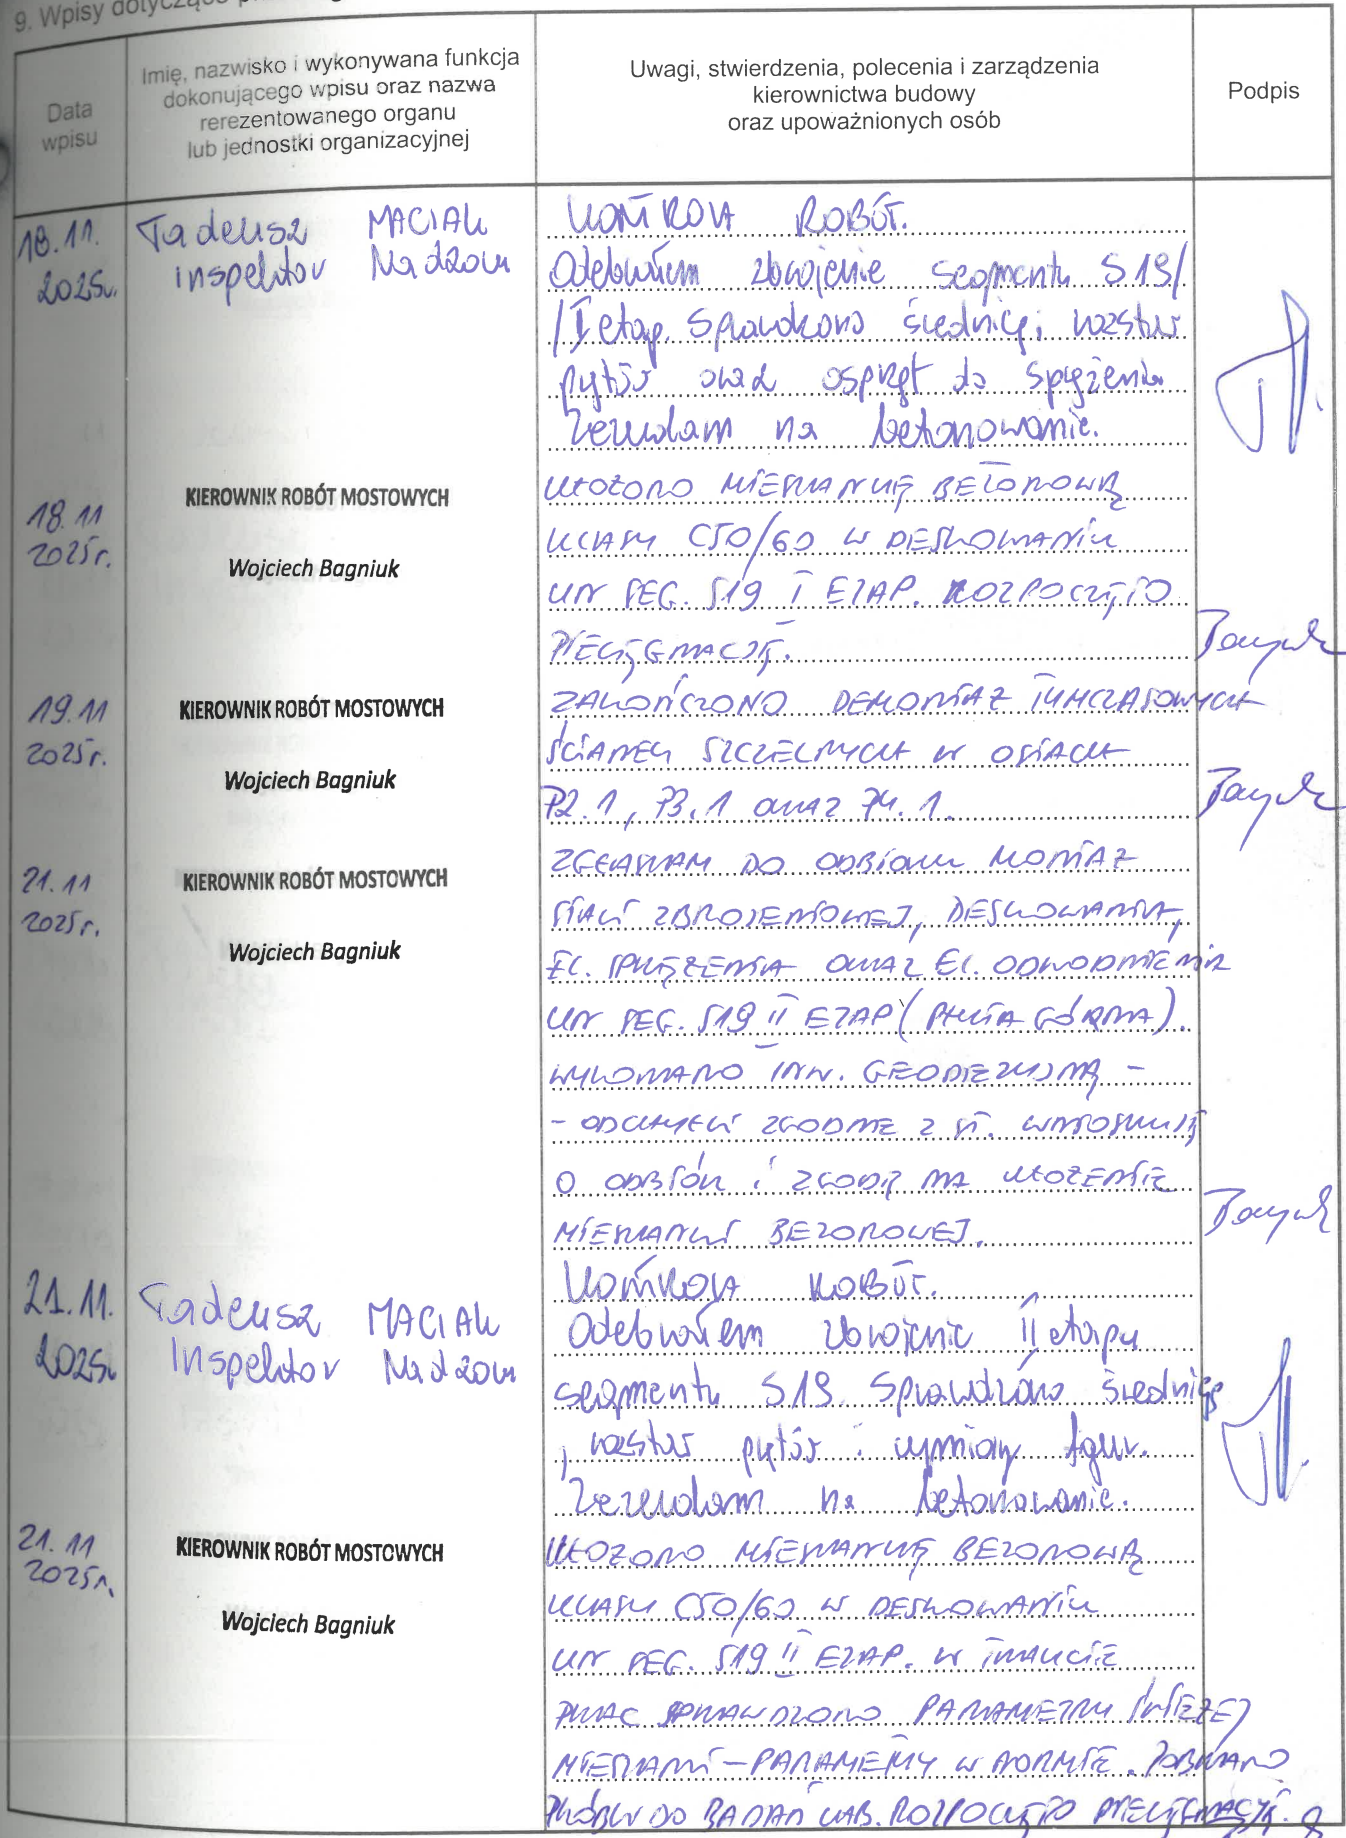 9. Wpisy dotyczące
Data
wpisu
Imię, nazwisko i wykonywana funkcja
dokonującego wpisu oraz nazwa
rerezentowanego organu
lub jednostki organizacyjnej
Uwagi, stwierdzenia, polecenia i zarządzenia
kierownictwa budowy
oraz upoważnionych osób
Podpis
18.11.
2025r.
Tadeusz MACIAK
inspektor Nadzoru
KONTROLA ROBÓT.
Odebrałem zbrojenie segmentu S19/
/I etap. Sprawdzono średnicę, rozstaw
prętów oraz osprzęt do sprężenia
Zezwalam na betonowanie.
18.11
2025r.
KIEROWNIK ROBÓT MOSTOWYCH
Wojciech Bagniuk
UŁOŻONO MIESZANKĘ BETONOWĄ
KLASY C50/60 W DESKOWANIU
UN SEG. S19 I ETAP. ROZPOCZĘTO
PIELĘGNACJĘ.
19.11
2025r.
KIEROWNIK ROBÓT MOSTOWYCH
Wojciech Bagniuk
ZAKOŃCZONO DEMONTAŻ TYMCZASOWYCH
ŚCIANEK SZCZELNYCH W OSIACH
P2.1, P3.1 ORAZ P4.1.
21.11
2025r.
KIEROWNIK ROBÓT MOSTOWYCH
Wojciech Bagniuk
ZGŁASZAM DO ODBIORU MONTAŻ
STALI ZBROJENIOWEJ, DESKOWANIA,
EL. SPRĘŻENIA ORAZ EL. ODWODNIENIA
UN SEG. S19 II ETAP (PŁYTA GÓRNA).
WYKONANO INW. GEODEZYJNĄ -
- ODCHYŁKI ZGODNE Z ST. WNIOSKUJĘ
O ODBIÓR I ZGODĘ NA UŁOŻENIE
MIESZANKI BETONOWEJ.
21.11.
2025r
Tadeusz MACIAK
Inspektor Nadzoru
KONTROLA ROBÓT.
Odebrałem zbrojenie II etapu
segmentu S19. Sprawdzono średnicę
, rozstaw prętów i wymiary figur.
Zezwalam na betonowanie.
21.11
2025r.
KIEROWNIK ROBÓT MOSTOWYCH
Wojciech Bagniuk
UŁOŻONO MIESZANKĘ BETONOWĄ
KLASY C50/60 W DESKOWANIU
UN SEG. S19 II ETAP. W TRAKCIE
PRAC SPRAWDZONO PARAMETRY ŚWIEŻEJ
MIESZANKI - PARAMETRY W NORMIE. POBRANO
PRÓBKI DO BADAŃ LAB. ROZPOCZĘTO PIELĘGNACJĘ.